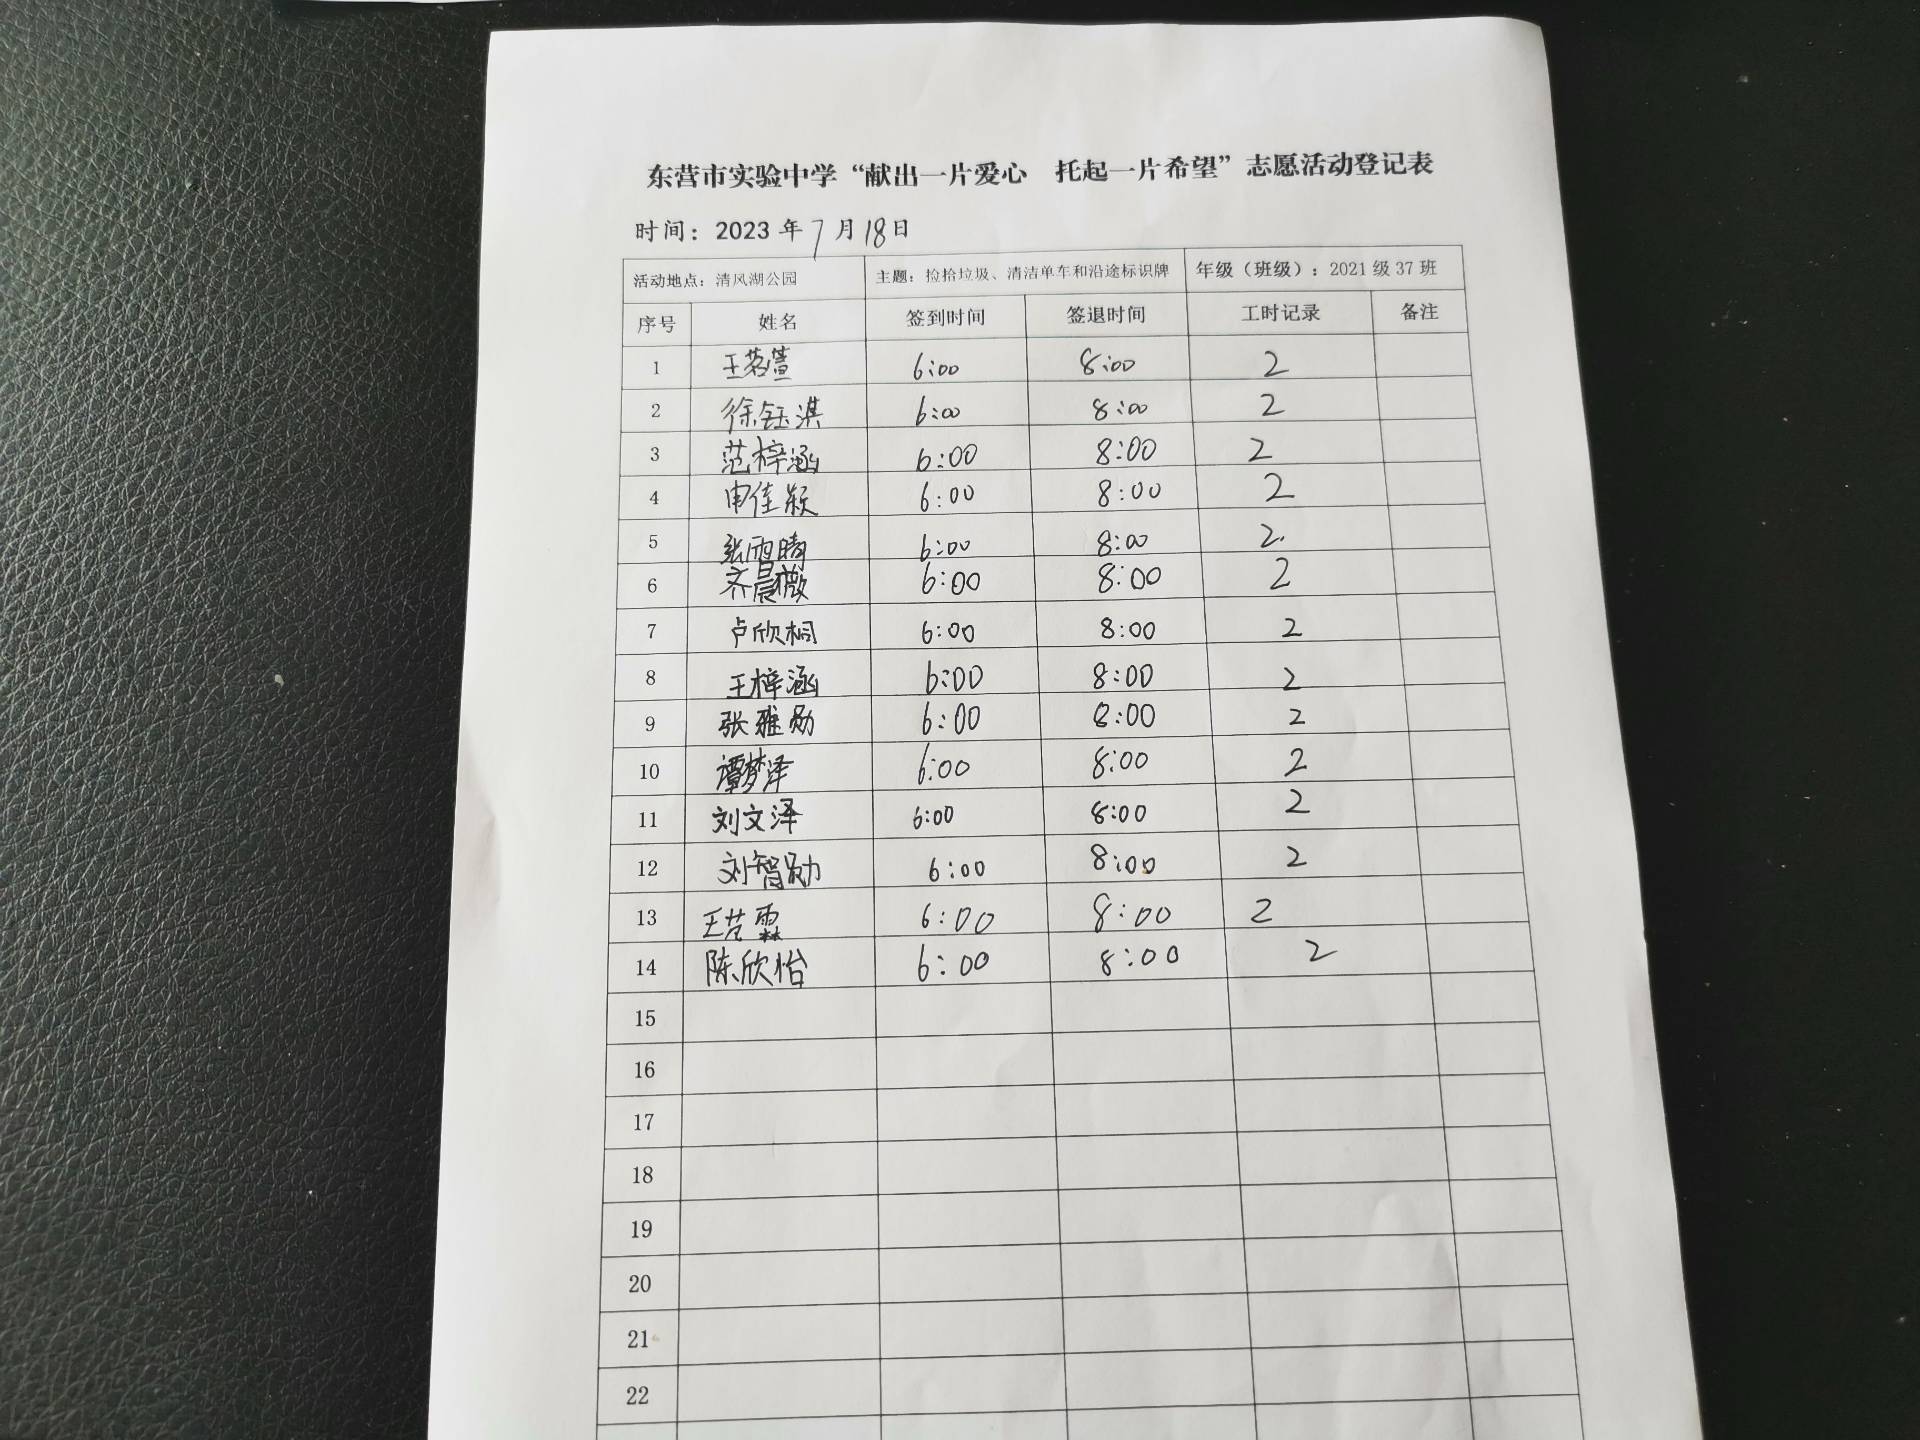 东营市实验中学“献出一片爱心 托起一片希望”志愿活动登记表
时间：2023年7月18日
活动地点：清风湖公园 主题：捡拾垃圾、清洁单车和沿途标识牌 年级（班级）：2021级37班
序号 姓名 签到时间 签退时间 工时记录 备注
1 王茗萱 6:00 8:00 2
2 徐钰淇 6:00 8:00 2
3 范梓涵 6:00 8:00 2
4 申佳颖 6:00 8:00 2
5 张雨晴 6:00 8:00 2.
6 齐晨薇 6:00 8:00 2
7 卢欣桐 6:00 8:00 2
8 王梓涵 6:00 8:00 2
9 张雅勋 6:00 8:00 2
10 谭梦泽 6:00 8:00 2
11 刘文泽 6:00 8:00 2
12 刘智勋 6:00 8:00 2
13 王艺霖 6:00 8:00 2
14 陈欣怡 6:00 8:00 2
15
16
17
18
19
20
21
22